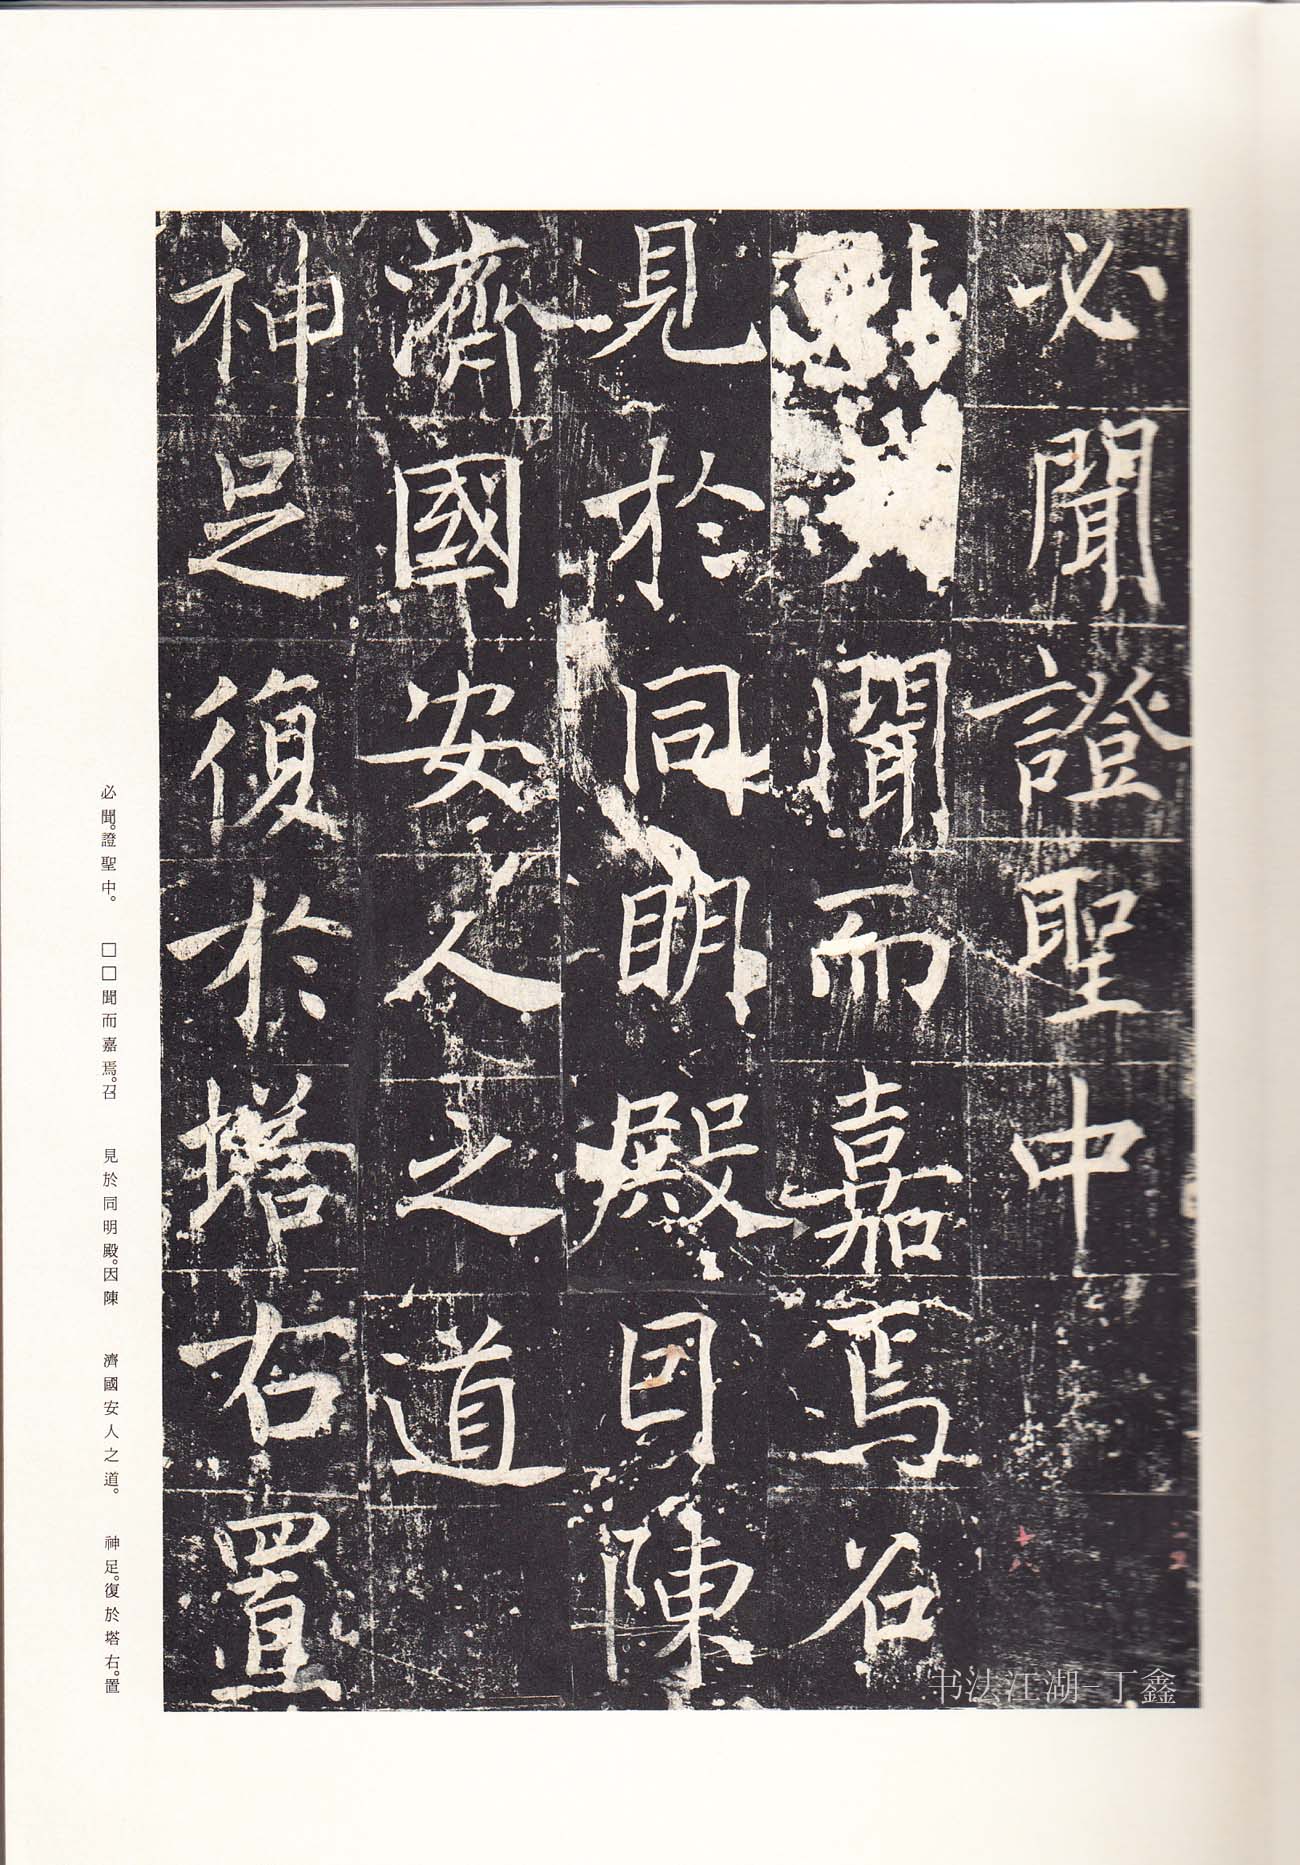 必聞證聖中
聞而嘉焉召
見於同明殿因陳
濟國安人之道
神足復於塔右置
十八
必聞。證聖中。 □□聞而嘉焉。召 見於同明殿。因陳 濟國安人之道。 神足。復於塔右。置
书法江湖-丁鑫